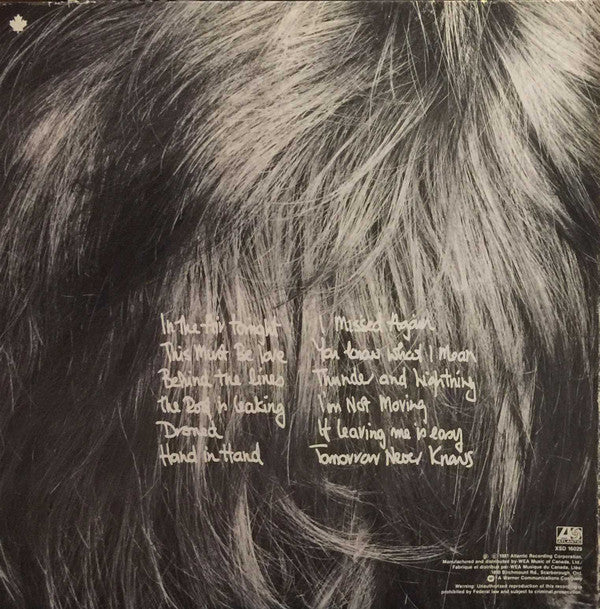 In The Air Tonight
This Must Be Love
Behind The Lines
The Roof is Leaking
Droned
Hand in Hand
I Missed Again
You Know What I Mean
Thunder and Lightning
I'm Not Moving
If leaving me is easy
Tomorrow Never Knows
ATLANTIC
XSD 16029
℗ © 1981 Atlantic Recording Corporation.
Manufactured and distributed by WEA Music of Canada, Ltd.
Fabriqué et distribué par WEA Musique du Canada, Ltée
1810 Birchmount Rd., Scarborough, Ont.
A Warner Communications Company
Warning: Unauthorized reproduction of this recording is
prohibited by Federal law and subject to criminal prosecution.